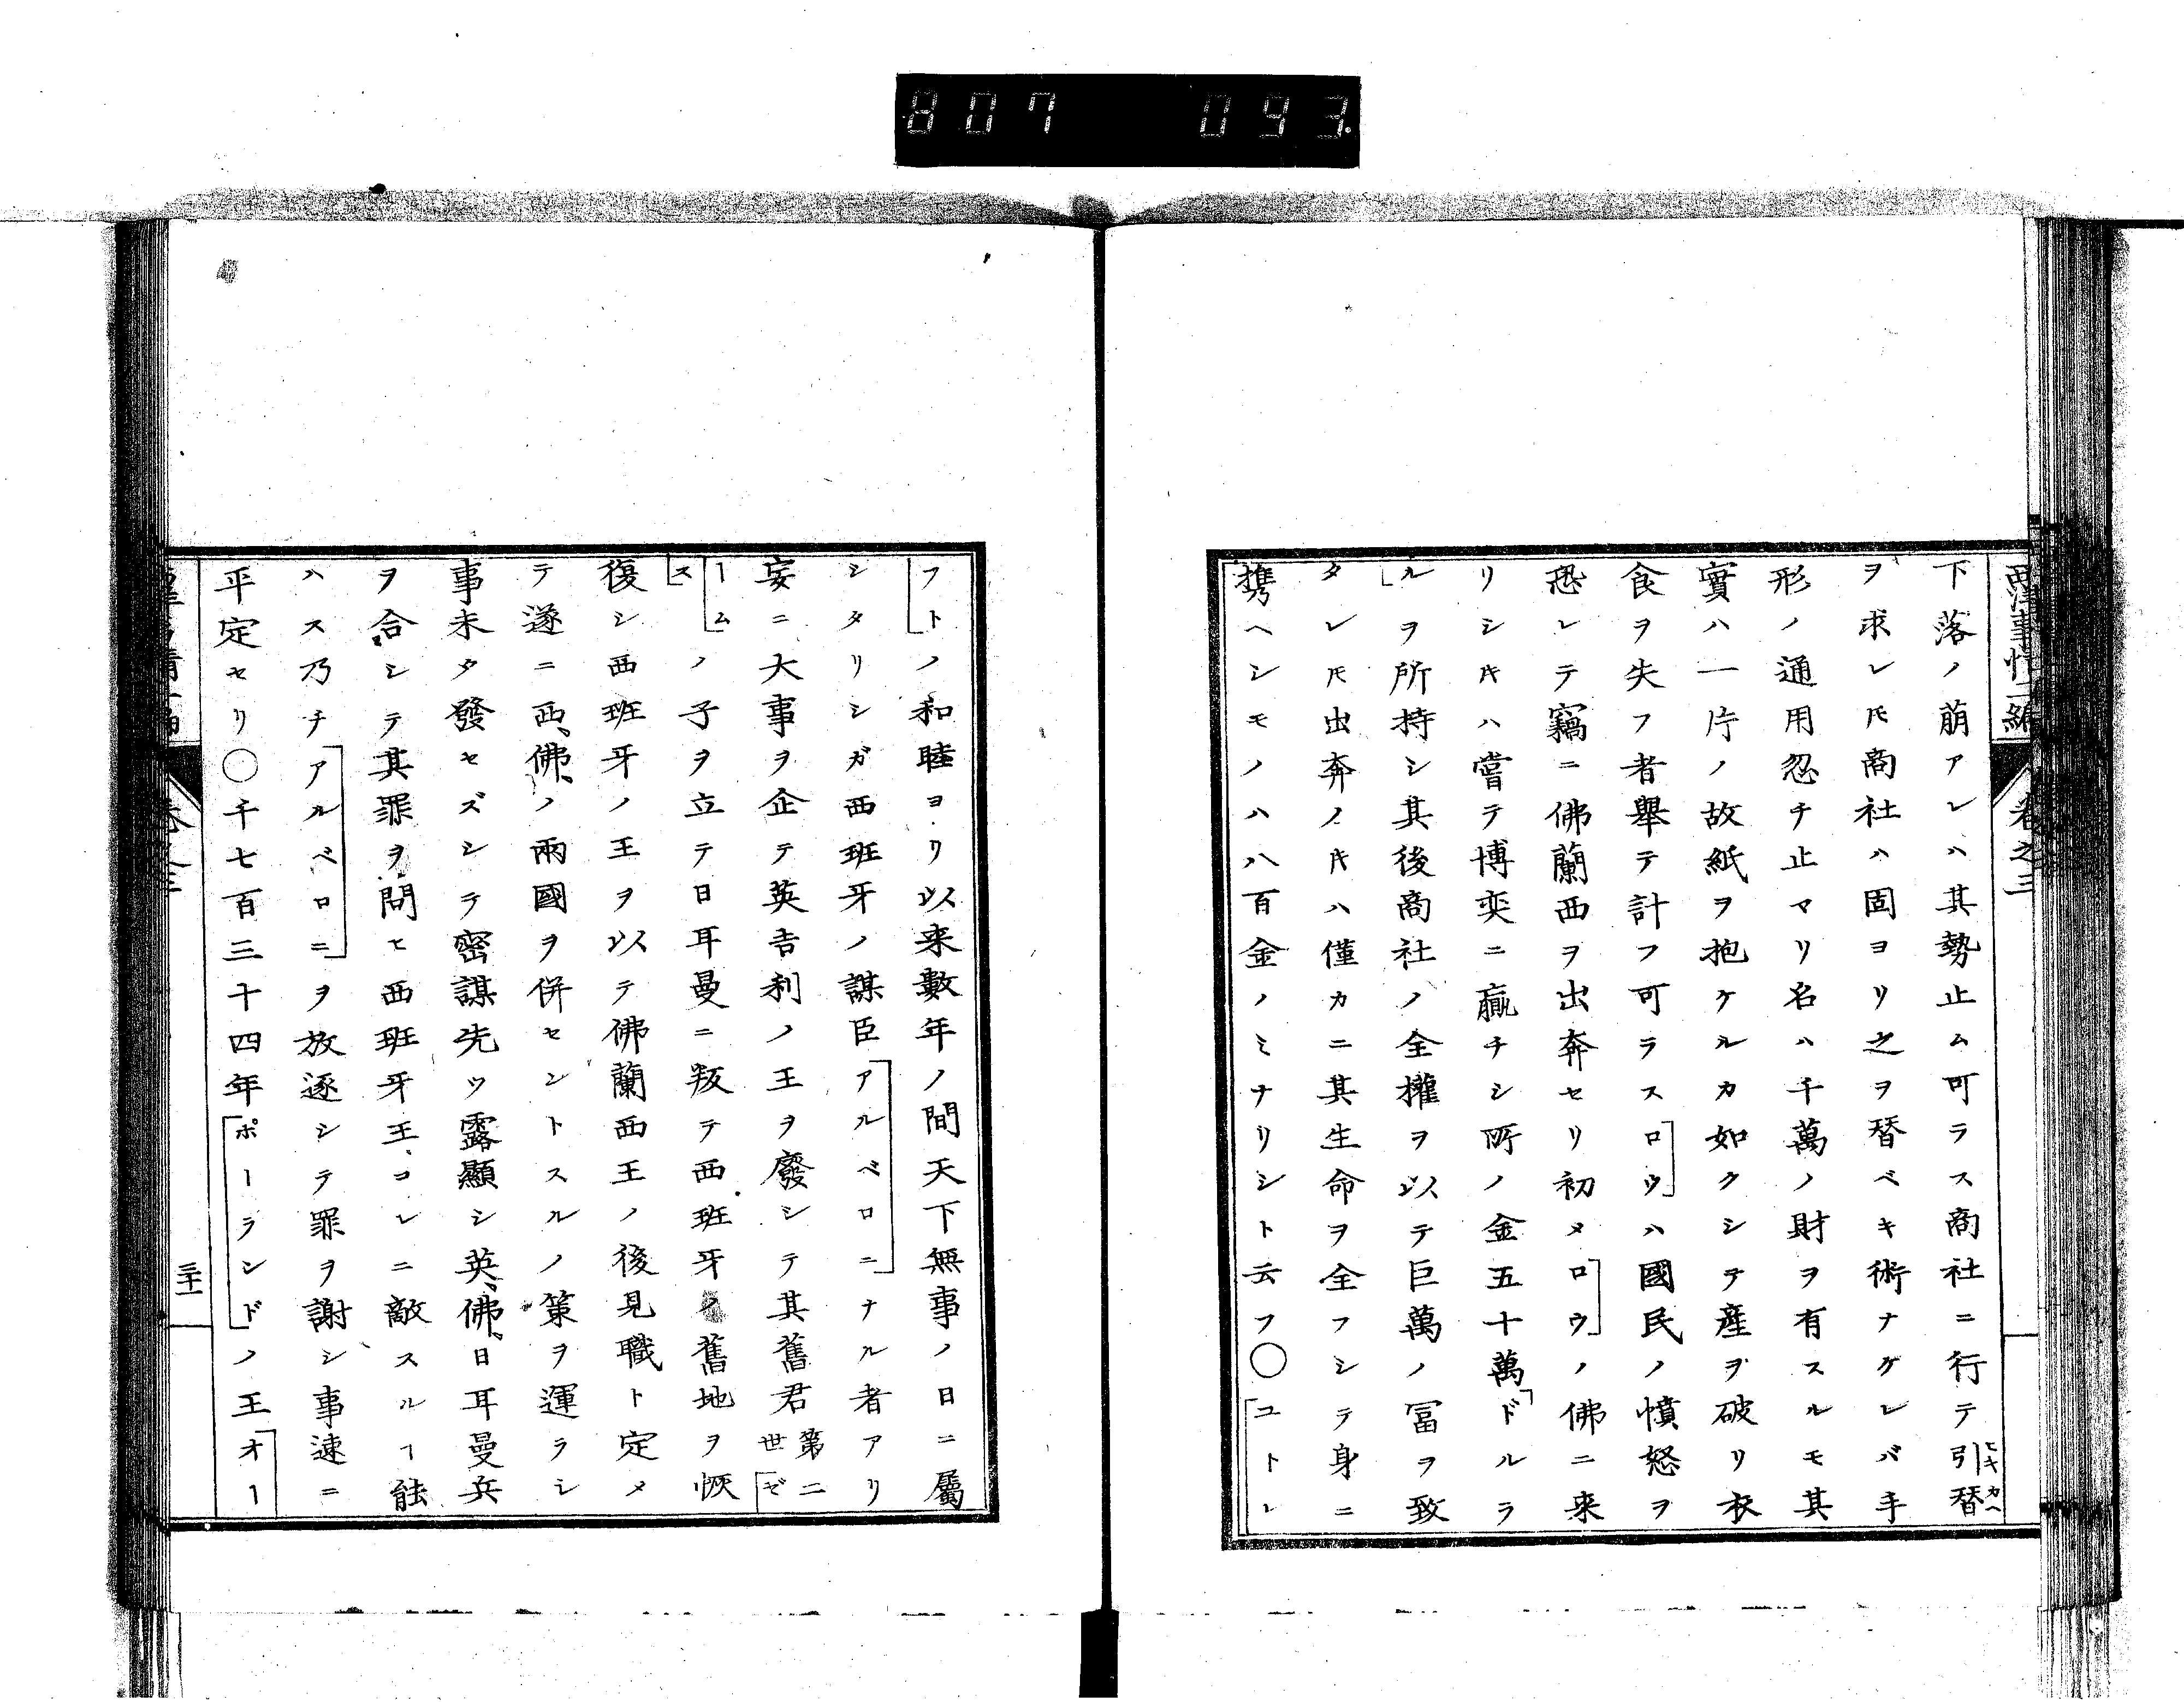 807 093.
西洋事情二編 卷之三
下落ノ萠アレハ其勢止ム可ラス商社ニ行テ引替
ヒキカヘ
ヲ求レ𪜈商社ハ固ヨリ之ヲ替ベキ術ナケレバ手
形ノ通用忽チ止マリ名ハ千萬ノ財ヲ有スルモ其
實ハ一片ノ故紙ヲ抱ケルカ如クシテ產ヲ破リ衣
食ヲ失フ者舉テ計フ可ラス「ロウ」ハ國民ノ憤怒ヲ
恐レテ竊ニ佛蘭西ヲ出奔セリ初メ「ロウ」ノ佛ニ来
リシ𪜈ハ嘗テ博奕ニ贏チシ所ノ金五十萬「ドルラ
ル」ヲ所持シ其後商社ノ全權ヲ以テ巨萬ノ冨ヲ致
タレ𪜈出奔ノ𪜈ハ僅カニ其生命ヲ全フシテ身ニ
携ヘシモノハ八百金ノミナリシト云フ○「ユトレ
フト」ノ和睦ヨリ以来數年ノ間天下無事ノ日ニ屬
シタリシガ西班牙ノ謀臣「アルベロニ」ナル者アリ
妄ニ大事ヲ企テ英吉利ノ王ヲ廢シテ其舊君第二世「ゼ
ーム」ノ子ヲ立テ日耳曼ニ叛テ西班牙ノ舊地ヲ恢
ス」
復シ西班牙ノ王ヲ以テ佛蘭西王ノ後見職ト定メ
テ遂ニ西、佛、ノ兩國ヲ併セントスルノ策ヲ運ラシ
事未タ發セズシテ密謀先ツ露顯シ英、佛、日耳曼兵
ヲ合シテ其罪ヲ問ヒ西班牙王、コレニ敵スルヿ能
ハス乃チ「アルベロニ」ヲ放逐シテ罪ヲ謝シ事速ニ
平定セリ○千七百三十四年「ポーランド」ノ王「オー
三十一